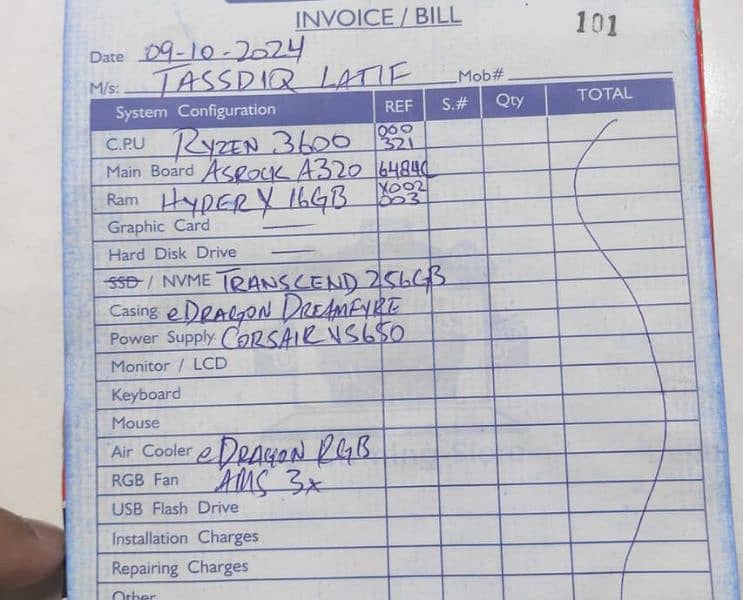 INVOICE / BILL 101
Date 09-10-2024
M/s: TASSDIQ LATIF Mob#
System Configuration REF S.# Qty TOTAL
C.P.U RYZEN 3600 000 321
Main Board ASROCK A320 6484C
Ram HYPER X 16GB X002 003
Graphic Card —
Hard Disk Drive —
SSD / NVME TRANSCEND 256GB
Casing eDRAGON DREAMFYRE
Power Supply CORSAIR VS650
Monitor / LCD
Keyboard
Mouse
Air Cooler eDRAGON RGB
RGB Fan AMS 3x
USB Flash Drive
Installation Charges
Repairing Charges
Other